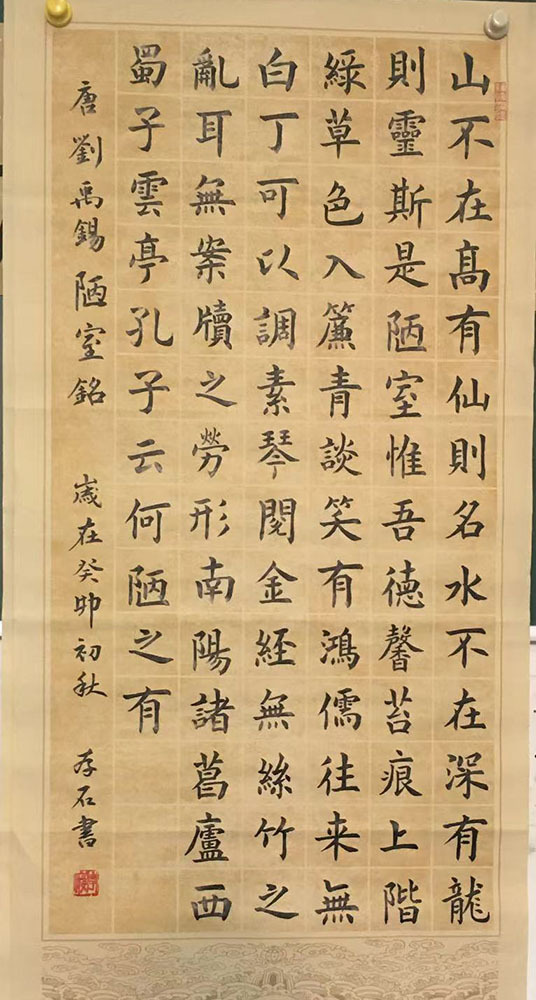 山不在高有仙則名水不在深有龍
則靈斯是陋室惟吾德馨苔痕上階
綠草色入簾青談笑有鴻儒往来無
白丁可以調素琴閱金經無絲竹之
亂耳無案牘之勞形南陽諸葛廬西
蜀子雲亭孔子云何陋之有
唐劉禹錫陋室銘 歲在癸卯初秋 存石書